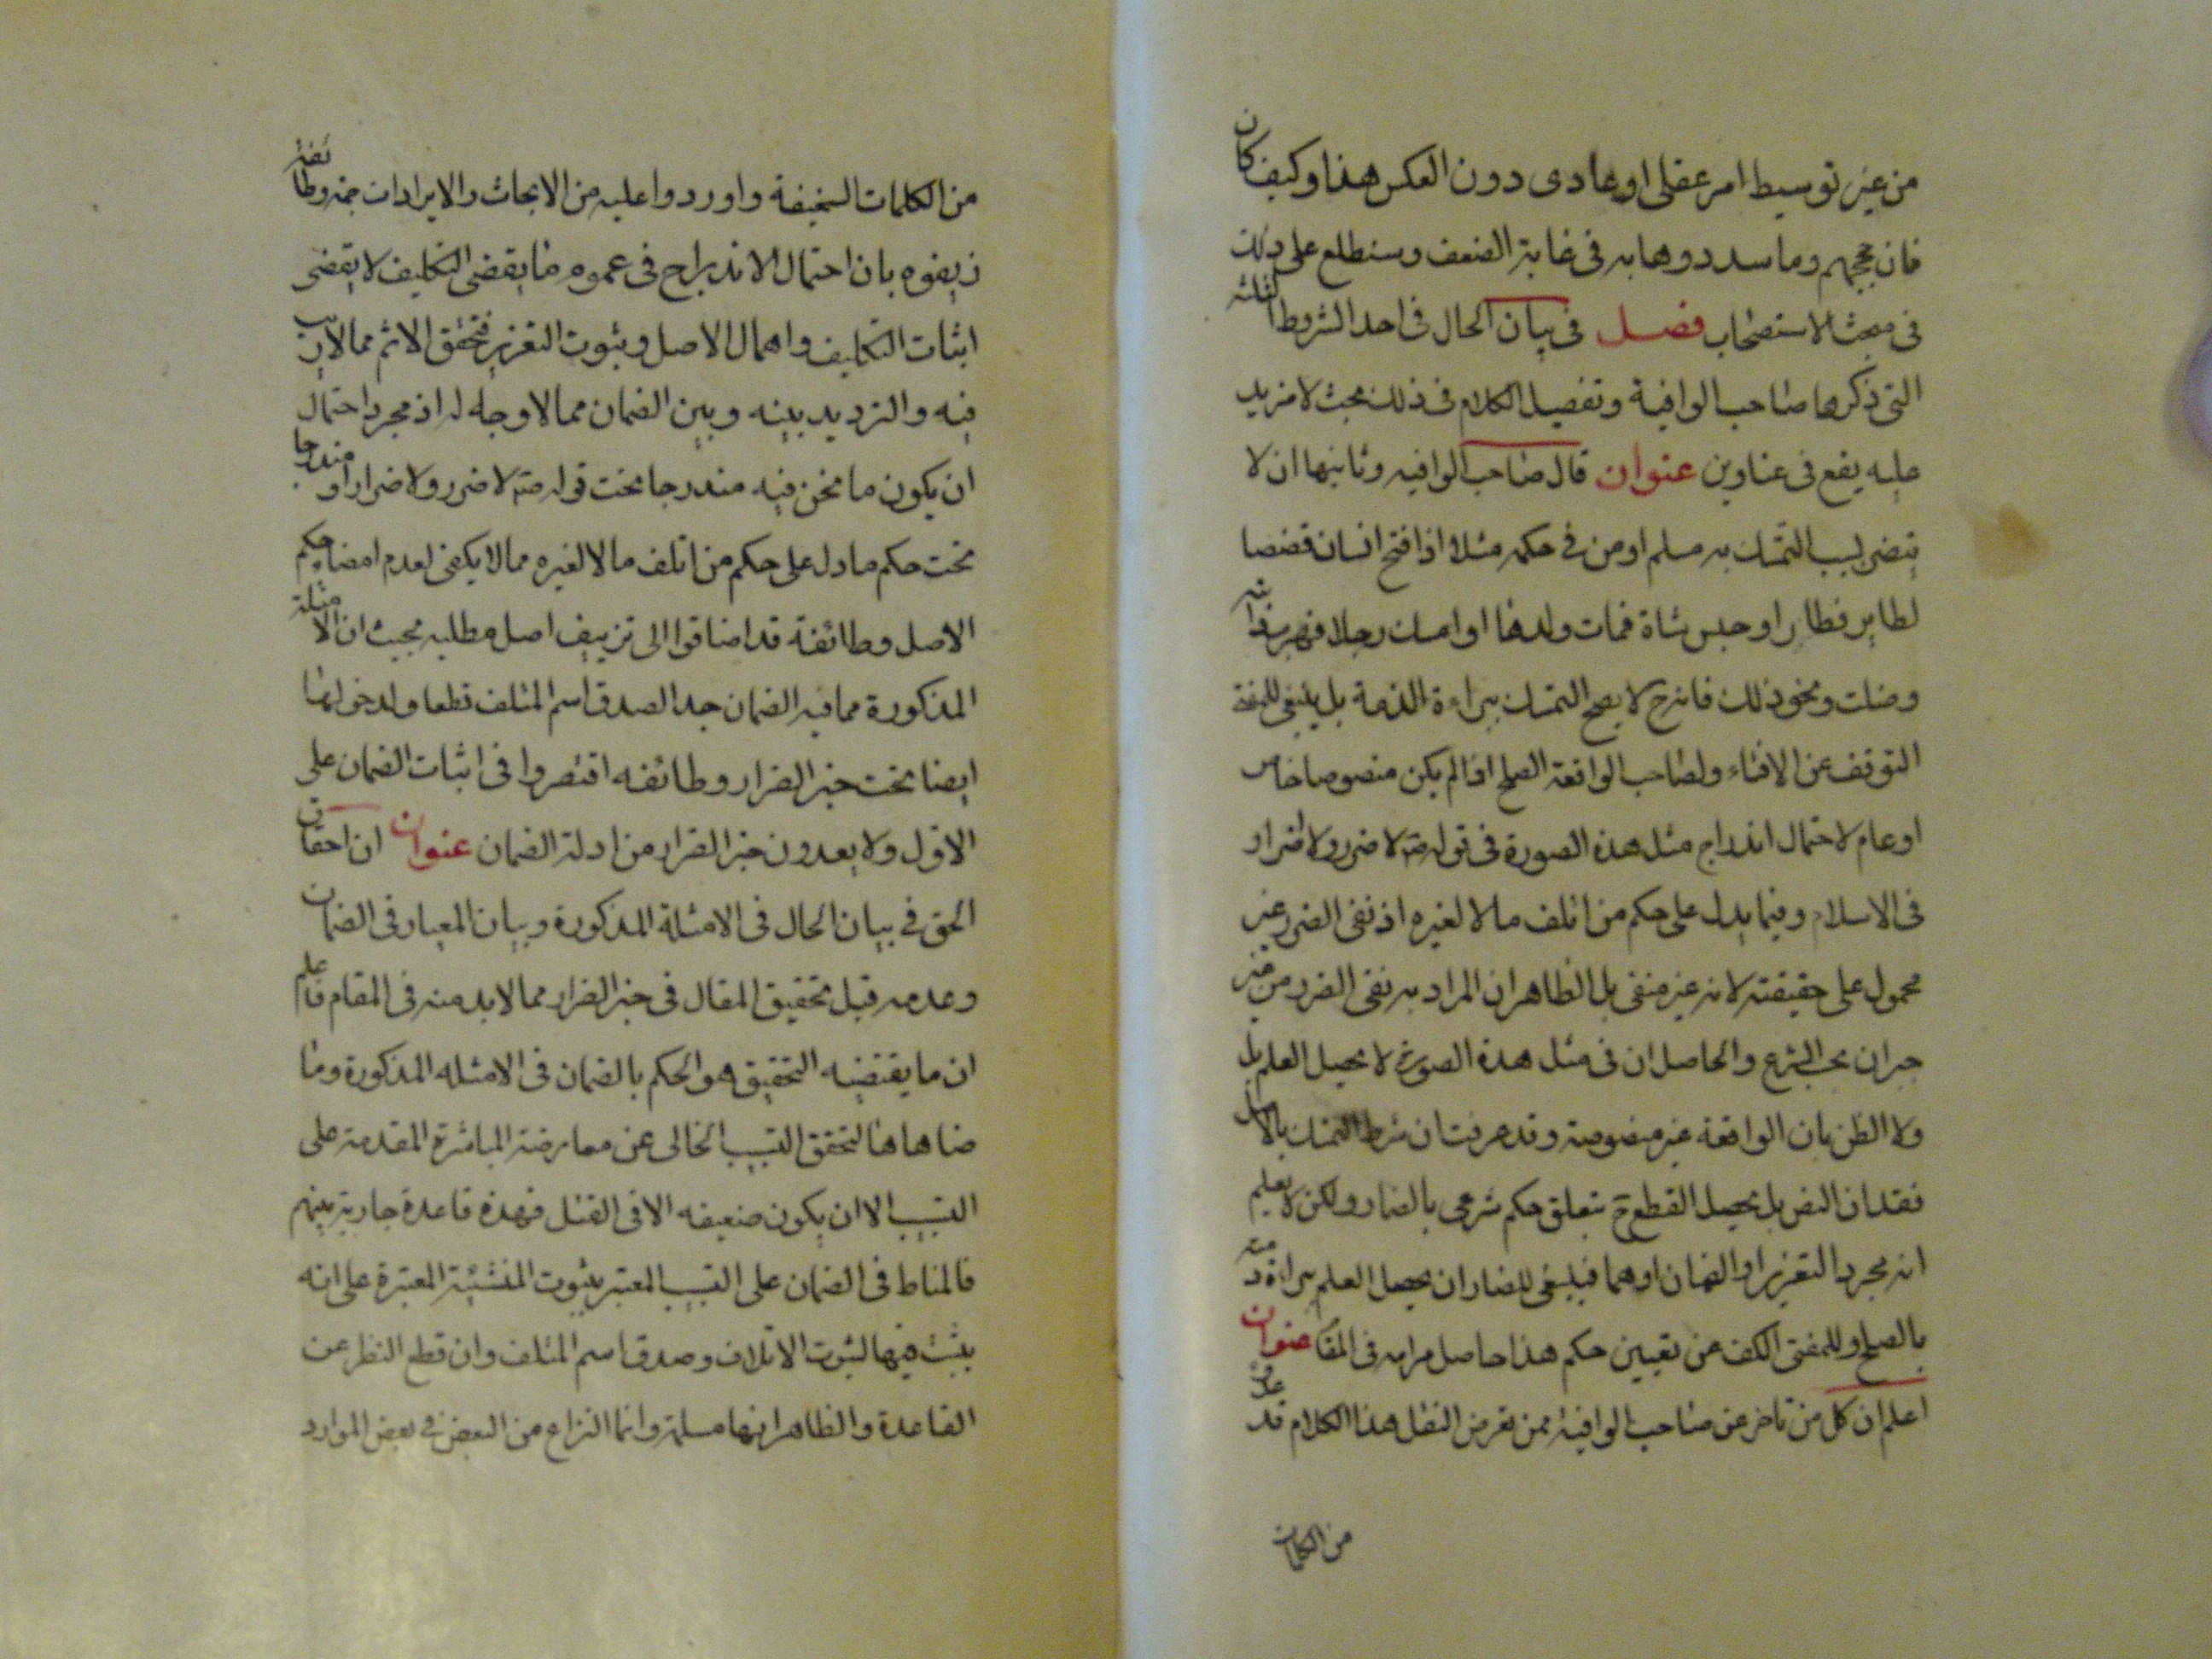 من غير توسيط امر عقلى او عادى دون العكس هذا وكيف كان
فان حججهم وما سددوها به فى غاية الضعف وستطلع على ذلك
فى مبحث الاستصحاب فصل فى بيان الحال فى احد الشروط الثلثة
التى ذكرها صاحب الوافية وتفصيل الكلام فى ذلك بحيث لا مزيد
عليه يقع فى عناوين عنوان قال صاحب الوافيه وثانيها ان لا
يتضرر بسبب التمسّك به مسلم او من فى حكمه مثلا اذا فتح انسان قفصا
لطاير فطار او حبس شاة فمات ولدها او امسك رجلا فهرب دابته
وضلت ونحو ذلك فانه ح لا يصح التمسك ببراءة الذمة بل ينبغى للمفتى
التوقف عن الافتاء ولصاحب الواقعة الصلح اذا لم يكن منصوصا خاص
او عام لاحتمال اندراج مثل هذه الصورة فى قوله ص لا ضرر ولا ضرار
فى الاسلام وفيما يدل على حكم من اتلف مالا لغيره اذ نفى الضرر غير
محمول على حقيقته لانه غير منفى بل الظاهر ان المراد به نفى الضرر من غير
جبران بحسب الشرع والحاصل ان فى مثل هذه الصورة لا يحصل العلم بل
ولا الظن بان الواقعة غير منصوصة وقد عرفت ان شرط التمسك بالاصل
فقدان النص بل يحصل القطع ح بتعلق حكم شرعى بالضار ولكن لا يعلم
انه مجرد التعزير او الضمان او هما فينبغى للضار ان يحصل العلم ببراءة ذمته
بالصلح وللمفتى الكف عن تعيين حكم هذا حاصل مرامه فى المقام عنوان
اعلم ان كل من تاخر عن صاحب الوافية ممن تعرض لنقل هذا الكلام قد
من الكلمات
من الكلمات السخيفة واوردوا عليه من الابحاث والايرادات جمة وطائفة
زيفوه بان احتمال الاندراج فى عموم ما يقضى التكليف لا يقضى
اثبات التكليف واهمال الاصل وثبوت التعزير فتحقق الاثم مما لا ريب
فيه والترديد بينه وبين الضمان مما لا وجه له اذ مجرد احتمال
ان يكون ما نحن فيه مندرجا تحت قوله ص لا ضرر ولا ضرار او مندرجا
تحت حكم ما دل على حكم من اتلف مالا لغيره مما لا يكفى لعدم امضاء حكم
الاصل وطائفة قد اضافوا الى تزييف اصل مطلبه بحيث ان الامثلة
المذكورة مما فيه الضمان جدا لصدق اسم المتلف قطعا ولدخولها
ايضا تحت خبر الضرار وطائفه اقتصروا فى اثبات الضمان على
الاول ولا يعدون خبر الضرار من ادلة الضمان عنوان ان احقاق
الحق فى بيان الحال فى الامثلة المذكورة وبيان المعيار فى الضمان
وعدمه قبل تحقيق المقال فى خبر الضرار مما لا بد منه فى المقام فاعلم
ان ما يقتضيه التحقيق هو الحكم بالضمان فى الامثله المذكورة وما
ضاهاها لتحقق التسبب الخالى عن معارضة المباشرة المقدمة على
التسبب الا ان يكون ضعيفه الا فى القتل فهذه قاعدة جارية بينهم
فالمناط فى الضمان على التسبب المعتبر بثبوت المنشئية المعتبرة على انه
يثبت فيها لثبوت الاتلاف وصدق اسم المتلف وان قطع النظر عن
القاعدة والظاهر انها مسلمة وانما النزاع من البعض فى بعض الموارد